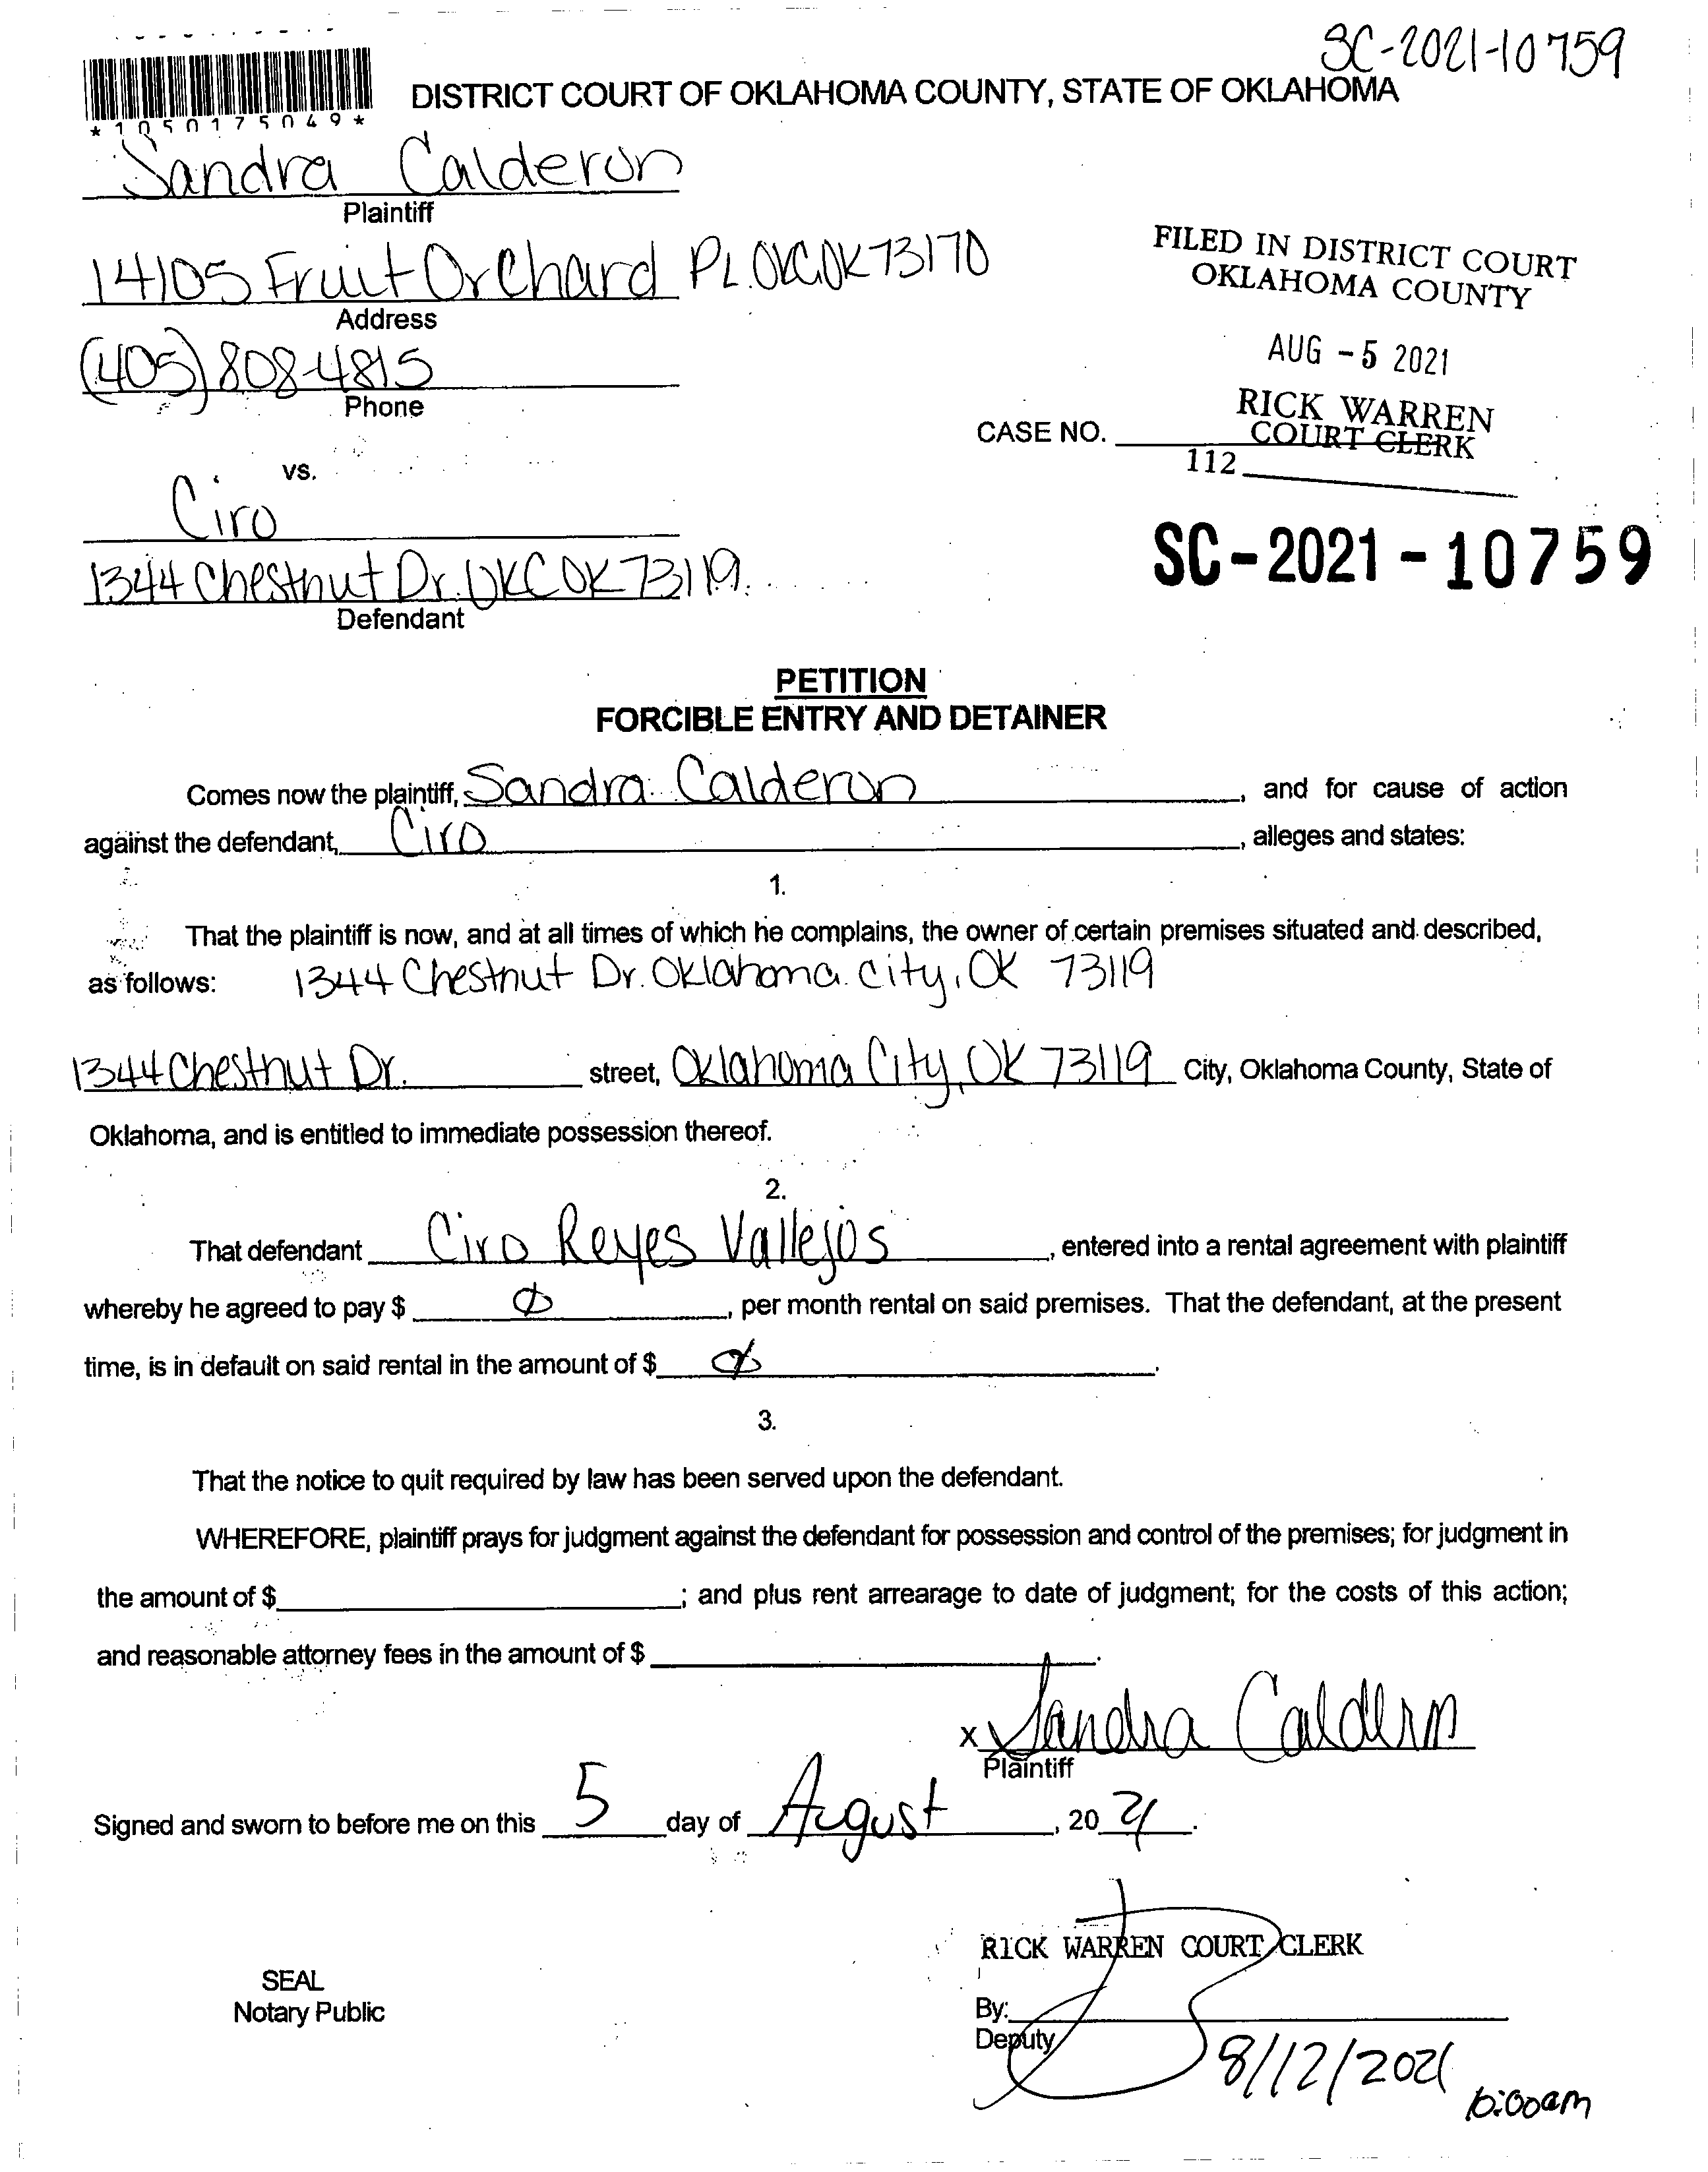 SC-2021-10759
*1050175049*
DISTRICT COURT OF OKLAHOMA COUNTY, STATE OF OKLAHOMA
Sandra Calderon
Plaintiff
14105 Fruit Orchard PL. OKC, OK 73170
Address
(405) 808-4815
Phone
FILED IN DISTRICT COURT
OKLAHOMA COUNTY
AUG -5 2021
RICK WARREN
COURT CLERK
CASE NO.
112
vs.
Ciro
1344 Chestnut Dr. OKC OK 73119.
Defendant
SC-2021-10759
PETITION
FORCIBLE ENTRY AND DETAINER
Comes now the plaintiff, Sandra Calderon, and for cause of action
against the defendant, Ciro, alleges and states:
1.
That the plaintiff is now, and at all times of which he complains, the owner of certain premises situated and described,
as follows: 1344 Chestnut Dr. Oklahoma City, OK 73119
1344 Chestnut Dr. street, Oklahoma City, OK 73119 City, Oklahoma County, State of
Oklahoma, and is entitled to immediate possession thereof.
2.
That defendant Ciro Reyes Vallejos, entered into a rental agreement with plaintiff
whereby he agreed to pay $ Ø, per month rental on said premises. That the defendant, at the present
time, is in default on said rental in the amount of $ Ø.
3.
That the notice to quit required by law has been served upon the defendant.
WHEREFORE, plaintiff prays for judgment against the defendant for possession and control of the premises; for judgment in
the amount of $ ; and plus rent arrearage to date of judgment; for the costs of this action;
and reasonable attorney fees in the amount of $ .
x Sandra Calderon
Plaintiff
Signed and sworn to before me on this 5 day of August, 20 21.
RICK WARREN COURT CLERK
SEAL
Notary Public
By:
Deputy
8/12/2021
10:00am